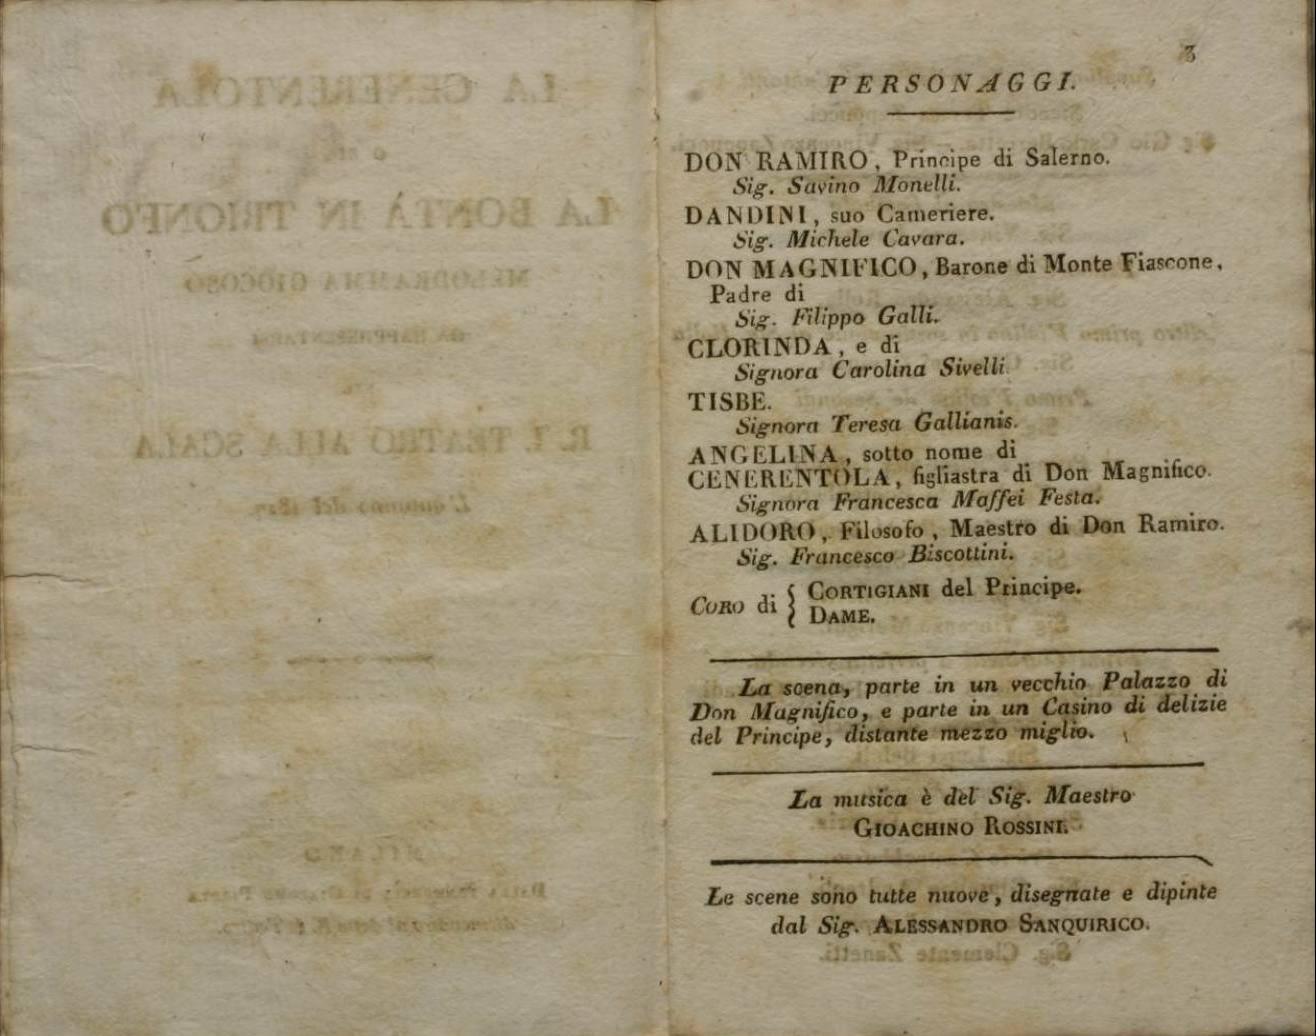 3
PERSONAGGI.
DON RAMIRO, Principe di Salerno.
Sig. Savino Monelli.
DANDINI, suo Cameriere.
Sig. Michele Cavara.
DON MAGNIFICO, Barone di Monte Fiascone,
Padre di
Sig. Filippo Galli.
CLORINDA, e di
Signora Carolina Sivelli.
TISBE.
Signora Teresa Gallianis.
ANGELINA, sotto nome di
CENERENTOLA, figliastra di Don Magnifico.
Signora Francesca Maffei Festa.
ALIDORO, Filosofo, Maestro di Don Ramiro.
Sig. Francesco Biscottini.
CORO di { CORTIGIANI del Principe.
DAME.
La scena, parte in un vecchio Palazzo di
Don Magnifico, e parte in un Casino di delizie
del Principe, distante mezzo miglio.
La musica è del Sig. Maestro
GIOACHINO ROSSINI.
Le scene sono tutte nuove, disegnate e dipinte
dal Sig. ALESSANDRO SANQUIRICO.